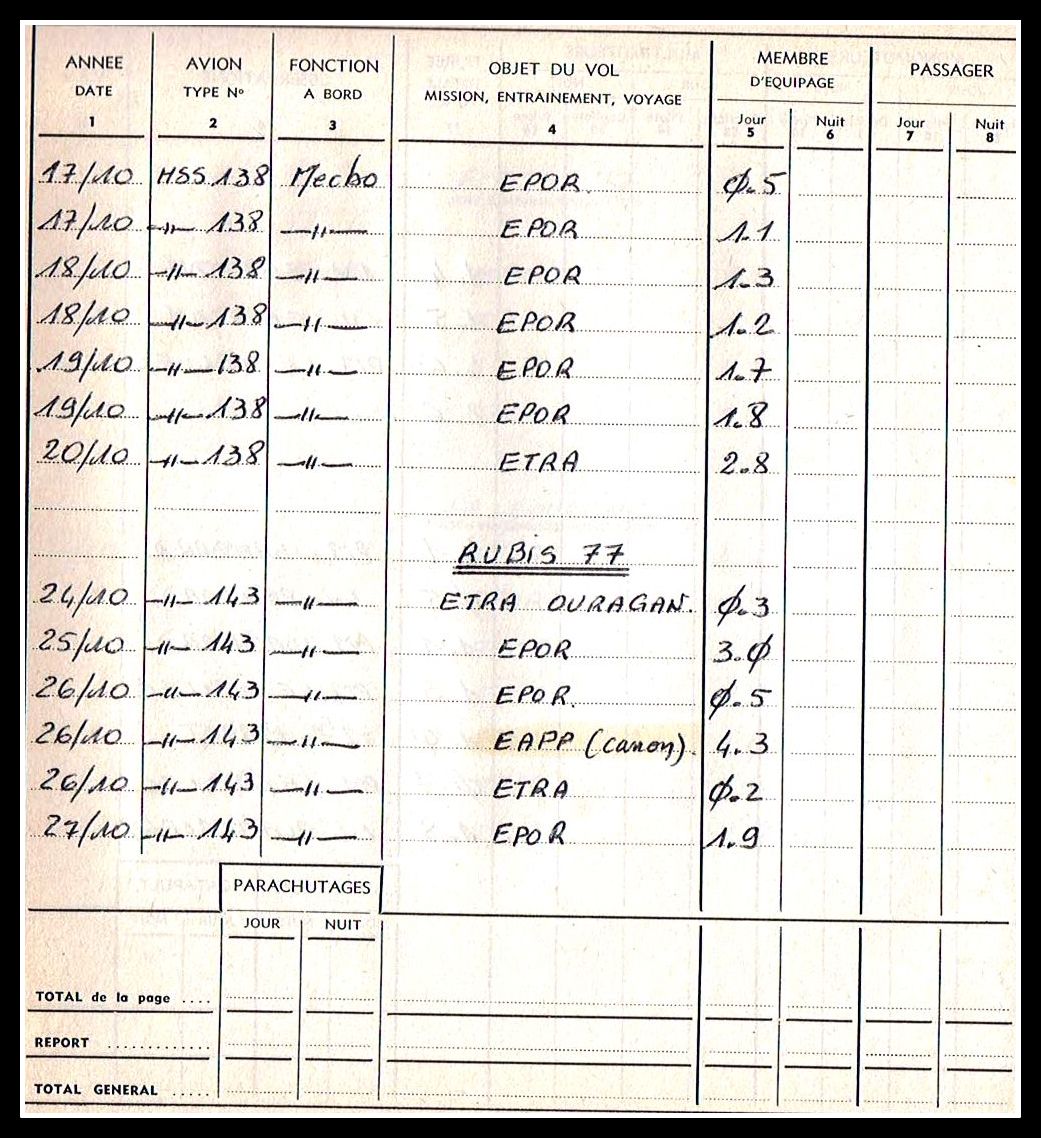 ANNEE AVION FONCTION OBJET DU VOL MEMBRE PASSAGER
DATE TYPE N° A BORD MISSION, ENTRAINEMENT, VOYAGE D'EQUIPAGE
1 2 3 4 Jour 5 Nuit 6 Jour 7 Nuit 8
17/10 HSS 138 Mecbo EPOR. Ø.5
17/10 —〃— 138 —〃— EPOR 1.1
18/10 —〃— 138 —〃— EPOR 1.3
18/10 —〃— 138 —〃— EPOR 1.2
19/10 —〃— 138 —〃— EPOR 1.7
19/10 —〃— 138 —〃— EPOR 1.8
20/10 —〃— 138 —〃— ETRA 2.8
RUBIS 77
24/10 —〃— 143 —〃— ETRA OURAGAN. Ø.3
25/10 —〃— 143 —〃— EPOR 3.Ø
26/10 —〃— 143 —〃— EPOR. Ø.5
26/10 —〃— 143 —〃— EAPP (canon). 4.3
26/10 —〃— 143 —〃— ETRA Ø.2
27/10 —〃— 143 —〃— EPOR 1.9
PARACHUTAGES
JOUR NUIT
TOTAL de la page ....
REPORT ............
TOTAL GENERAL .....